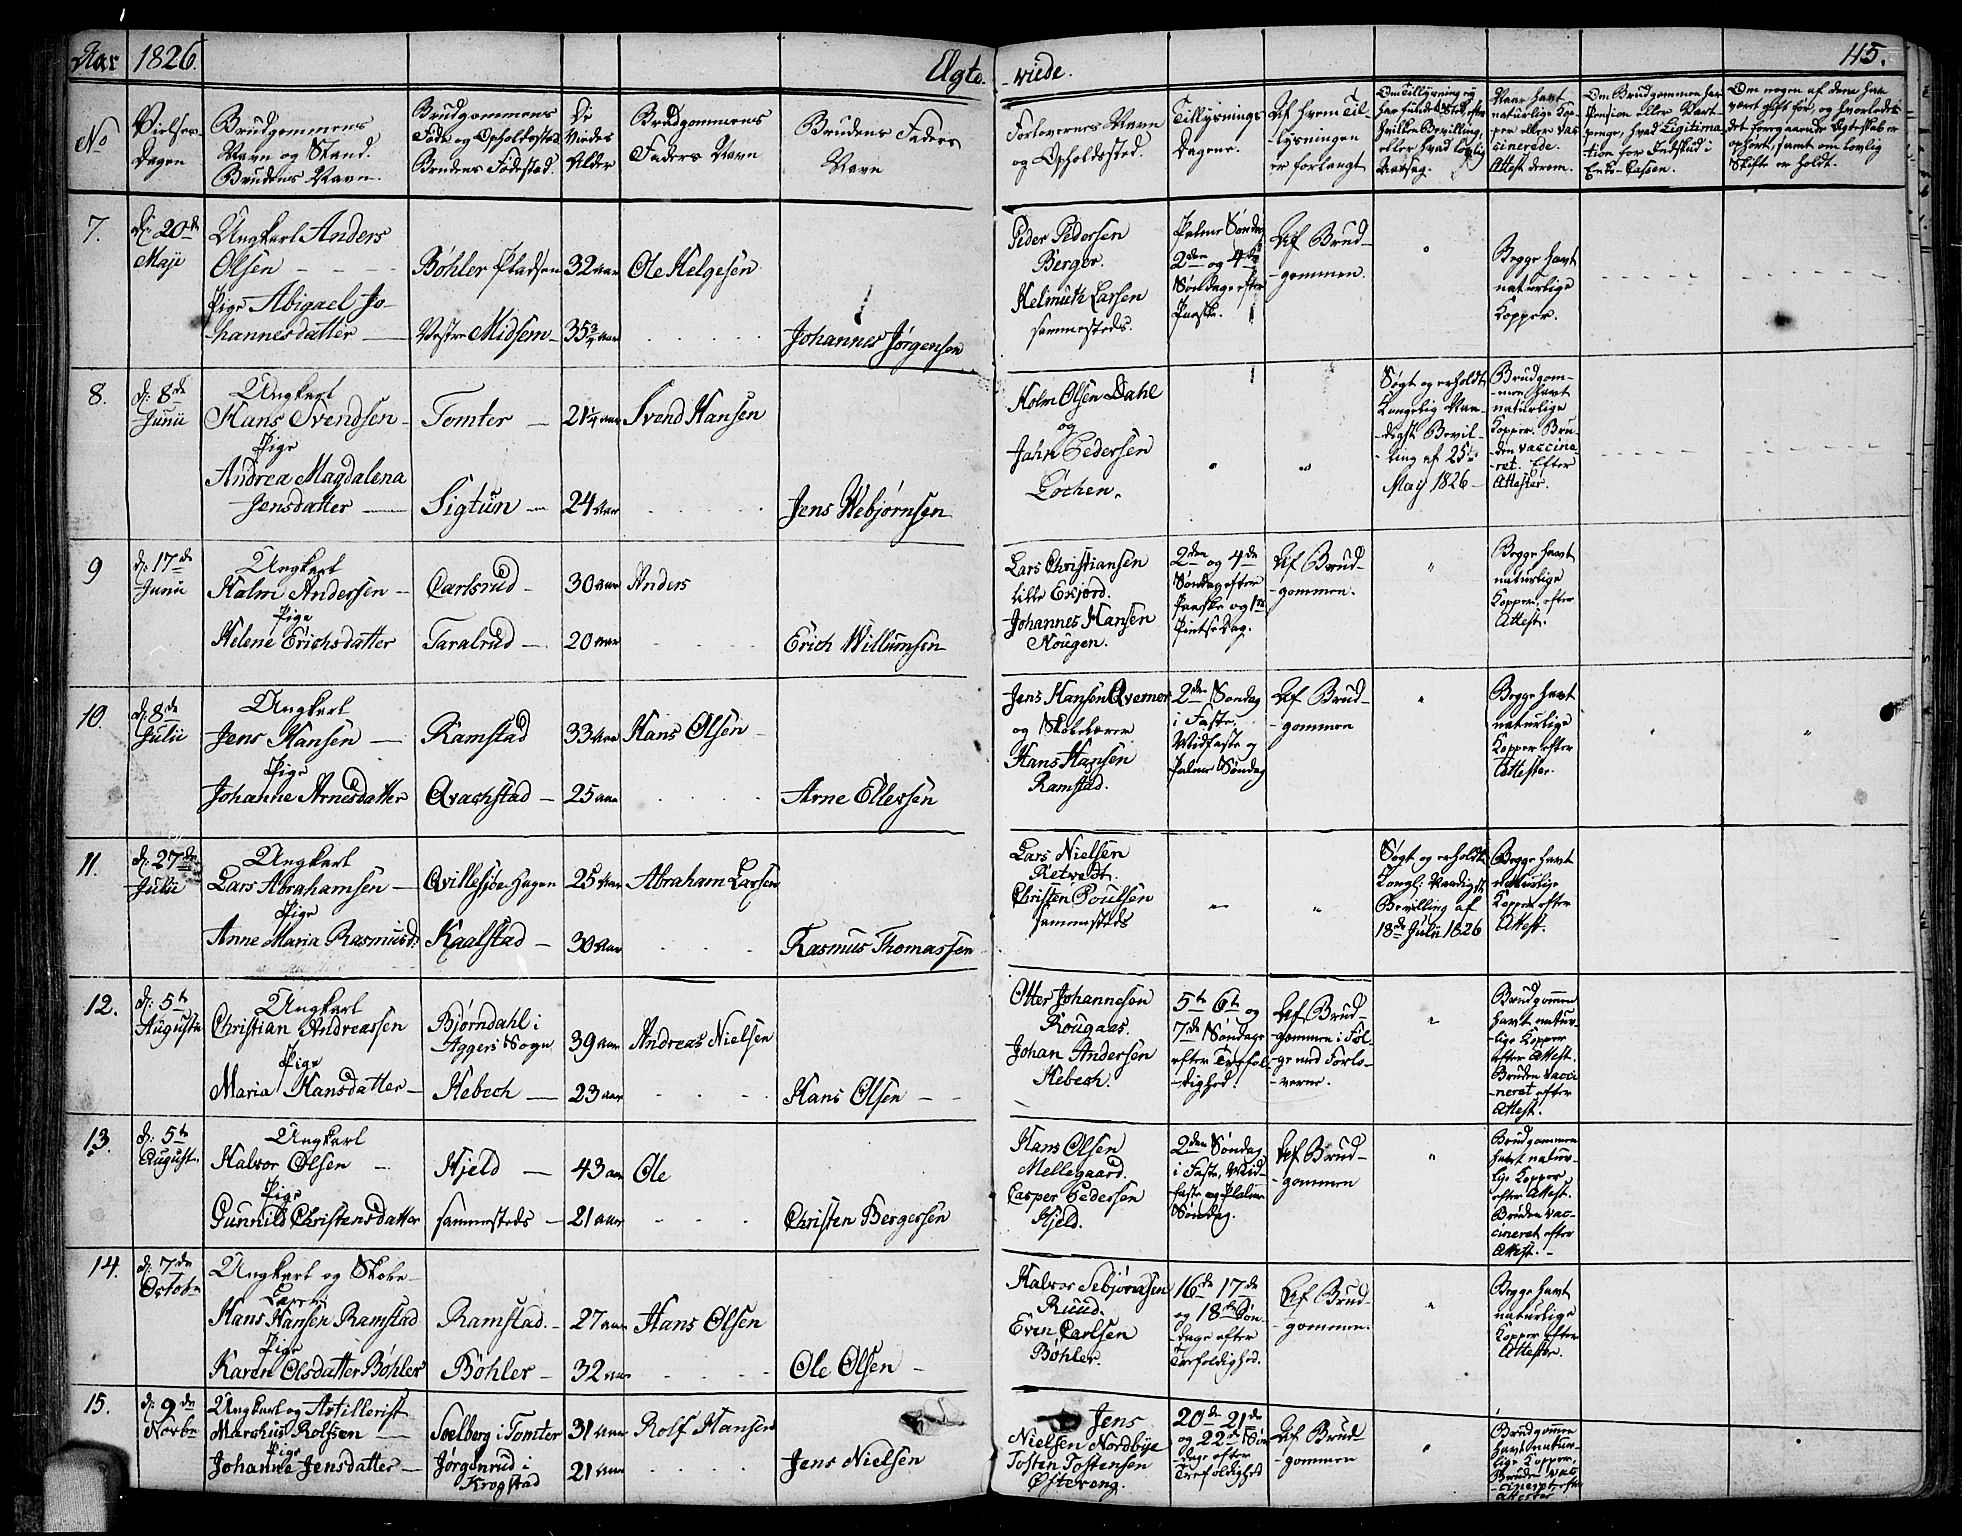 Aar 1826. Ægte- -viede. 115.
No
Vielses-
Dagen
Brudgommens
Navn og Stand.
Brudens Navn.
Brudgommens
Føde og Opholdssted
Brudens Fødested.
De
Viedes
Alder
Brudgommens
Faders Navn
Brudens Faders
Navn
Forlovernes Navn
og Opholdssted.
Tillysnings
Dagene.
Af hvem Til-
lysningen
er forlangt
Om Tillysning ej
har fundet Sted, efter
hvilken Bevilling,
eller hvad lovlig
Aarsag.
Naar havt
naturlige Kop-
per eller vac
cinerede.
Attest derom.
Om Brudgommen har
Pension eller Vart-
penge, hvad Legitima
tion for Indskud i
Enke-Cassen.
Om nogen af dem har
været gift før, og hvorledes
det foregaaende Ægteskab er
ophørt, samt om lovlig
Skifte er holdt.
7.
d: 20de
Maji
Ungkarl Anders
Olsen
Pige Abigael Jo-
hannesdatter
Bøhler Pladsen
Vestre Midsem
32 aar
35¾ aar
Ole Helgesen
Johannes Jørgensen
Peder Pedersen
Berger.
Helmuth Larsen
sammesteds.
Palme Søndag
2den og 4de
Søndag efter
Paaske.
Af Brud-
-gommen.
Begge havt
naturlige
Kopper.
8.
d: 8de
Junii
Ungkarl
Hans Svendsen
Pige
Andrea Magdalena
Jensdatter
Tomter
Sigtun
21¼ aar
24 aar
Svend Hansen
Jens Webjørnsen
Holm Olsen Dahl
og
Jahn Pedersen
Lochen.
Søgt og erholdt
Kongelig Naa-
digst Bevil-
ling af 25de
May 1826
Brudgom-
-men havt
naturlige
Kopper. Bru-
den vaccine-
-ret. Efter
Attester.
9
d: 17de
Junii
Ungkarl
Halm Andersen
Pige
Helene Erichsdatter
Carlsrud
Taralrud
30 aar
20 aar
Anders
Erich Willumsen
Lars Christiansen
lille Exjord.
Johannes Hansen
Nougen.
2den og 4de
Søndag efter
Paaske og 1ste
Pintse Dag.
Af Brud-
gommen.
Begge havt
naturlige
Kopper, efter
Attest.
10.
d: 8de
Julii
Ungkarl
Jens Hansen
Pige
Johanne Arnesdatter
Ramstad
Qvachstad
33 aar
25 aar
Hans Olsen
Arne Ellersen
Jens Hansen Qverner
og Skolelærer
Hans Hansen
Ramstad.
2den Søndag
i Faste.
Midfaste og
Palme Søndag
Af Brud-
-gommen
Begge havt
naturlige
Kopper efter
Attester.
11.
d: 27de
Julii
Ungkarl
Lars Abrahamsen
Pige
Anne Maria Rasmusd:
Qvillesjøe Hagen
Kaalstad
25 aar
30 aar
Abraham Larsen
Rasmus Thomassen
Lars Nielsen
Retvedt.
Christen Poulsen
sammesteds
Søgt og erholdt
Kongl: Naadigst
Bevilling af
18de Julii 1826
Begge havt
naturlige
Kopper efter
Attest.
12.
d: 5te
Augusti
Ungkarl
Christian Andreassen
Pige
Maria Hansdatter
Bjørndahl i
Aggers Sogn
Hebech
39 aar
23 aar
Andreas Nielsen
Hans Olsen
Otter Johannesen
Rougaas.
Johan Andersen
Hebech.
5te 6te og
7de Søndag
efter Trefol-
-dighed.
Af Brud-
-gommen i Føl-
ge med Forlo-
-verne.
Brudgommen
havt natur-
lige Kopper
efter Attest.
Bruden vacci
-neret efter
Attest.
13.
d: 5te
August.
Ungkarl
Halvor Olsen
Pige
Gunnild Christensdatter
Kjeld
sammesteds
43 aar
21 aar
Ole
Christen Bergersen
Hans Olsen
Mellegaard.
Casper Pedersen
Kjeld.
2den Søndag
i Faste, Mid-
faste og Palme
Søndag.
Af Brud-
gommen
Brudgommen
havt natur-
lige Kopper
efter Attest.
Bruden vac-
cineret efter
Attest.
14.
d: 7de
Octobr
Ungkarl og Skole-
Lærer
Hans Hansen Ramstad
Pige
Karen Olsdatter Bøhler
Ramstad.
Bøhler
27 aar
32 aar
Hans Olsen
Ole Olsen
Halvor Sebjørnsen
Ruud.
Even Carlsen
Bøhler.
16de 17de
og 18de Søn-
dage efter
Trefoldighed.
Af Brud-
-gommen.
Begge havt
naturlige
Kopper efter
Attester.
15.
d: 9de
Novbr
Ungkarl og Artillerist
Marchus Rolfsen
Pige
Johanne Jensdatter
Soelberg i Tomter
Jørgenrud i
Krogstad
31 aar
21 aar
Rolf Hansen
Jens Nielsen
Jens
Nielsen Nordbye
Tosten Tostensen
Østereng.
20de 21de
og 22de Søn
-dage efter
Trefoldighed
Af Brud-
gommen
Brudgommen
havt natur-
lige Kopper,
Bruden vac
-cineret efter
Attester